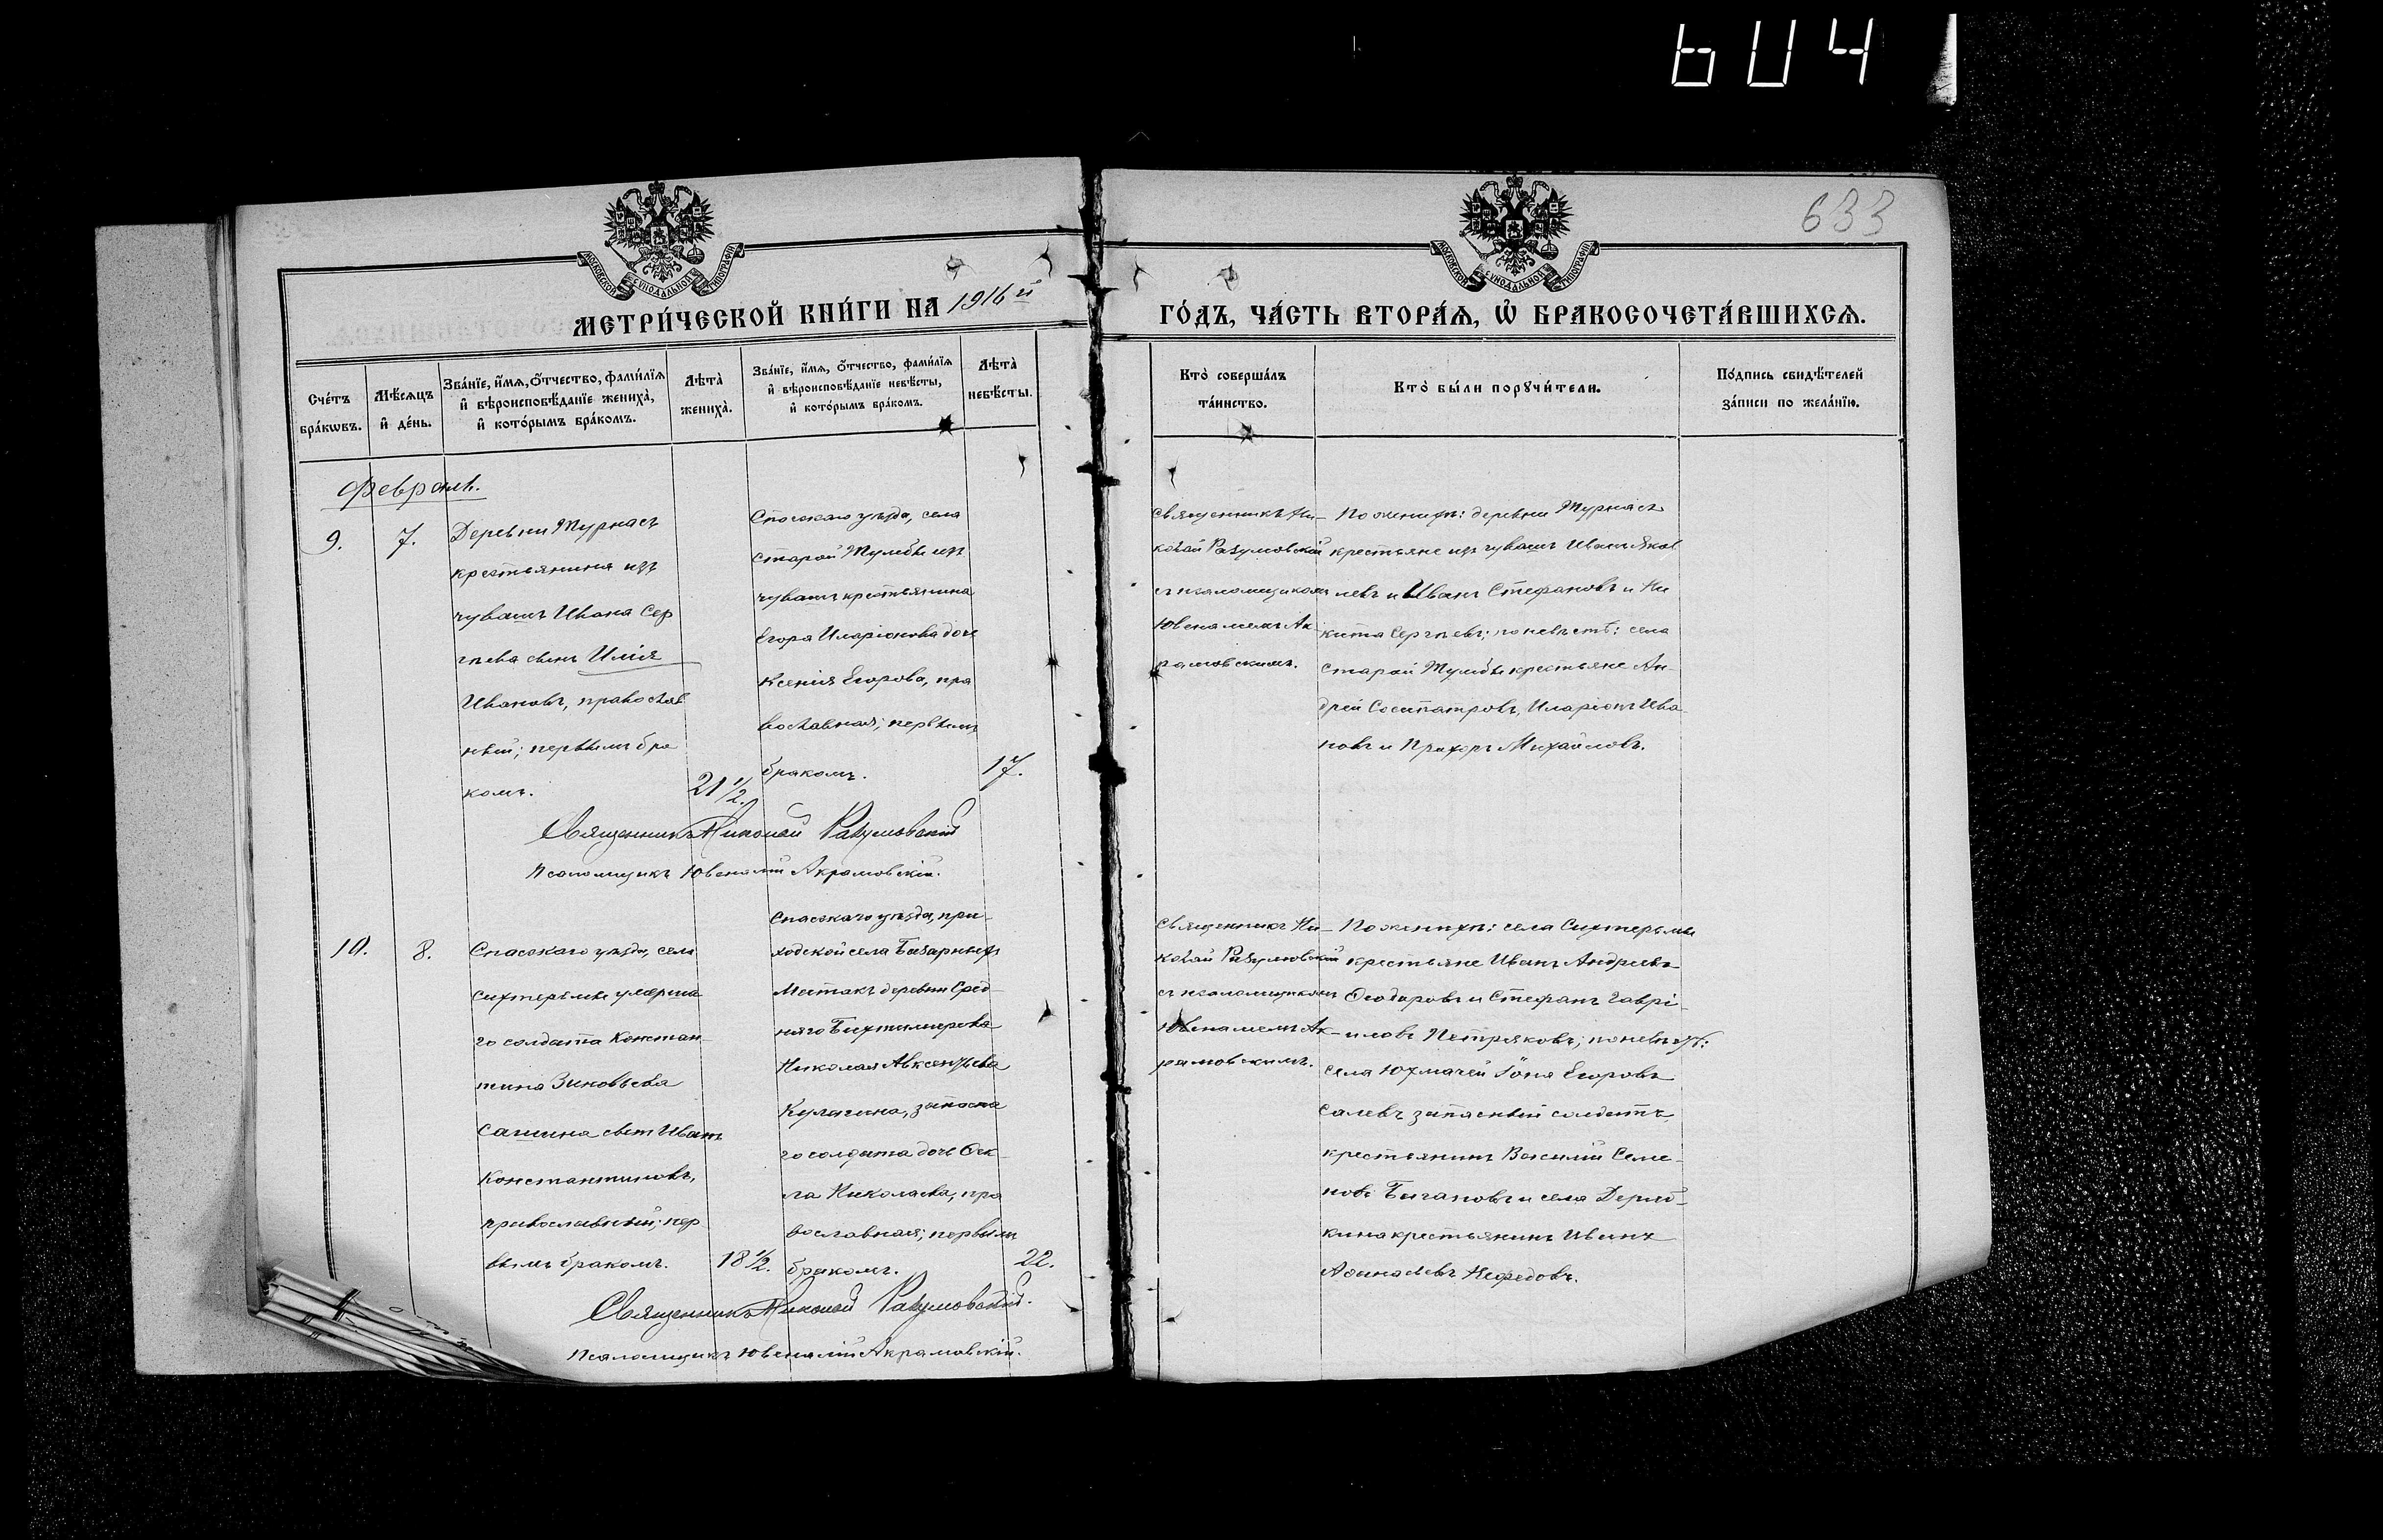 604
633
МОСКОВСКОЙ СѴНОДАЛЬНОЙ ТИПОГРАФІИ
МОСКОВСКОЙ СѴНОДАЛЬНОЙ ТИПОГРАФІИ
МЕТРИ́ЧЕСКОЙ КНИ́ГИ НА 1916 й
ГО́ДЪ, ЧА́СТЬ ВТОРА́Ѧ, Ѡ҆ БРАКОСОЧЕТА́ВШИХСѦ.
Сче́тъ бра́кѡвъ.
Мѣ́сяцъ и҆ де́нь.
Зва́нїе, и҆́мѧ, ѻ҆́тчество, фами́лїѧ
и҆ вѣроисповѣ́данїе жениха̀,
и҆ кото́рымъ бра́комъ.
Лѣта̀ жениха̀.
Зва́нїе, и҆́мѧ, ѻ҆́тчество, фами́лїѧ
и҆ вѣроисповѣ́данїе невѣ́сты,
и҆ кото́рымъ бра́комъ.
Лѣта̀ невѣ́сты.
Кто̀ соверша́лъ
та́инство.
Кто̀ бы́ли порꙋчи́тели.
По́дпись свидѣ́телей
за́писи по жела́нїю.
Февраль.
9.
7.
Деревни Турнасъ
крестьянина изъ
чувашъ Ивана Сер
гѣева сынъ Илія
Ивановъ, православ
ный; первымъ бра
комъ.
21 1/2.
Спасскаго уѣзда, села
Старой Тумбы изъ
чувашъ крестьянина
Егора Иларіонова дочь
Ксенія Егорова, пра
вославная; первымъ
бракомъ.
17.
Священникъ Ни-
колай Разумовскій
съ псаломщикомъ
Ювеналіемъ Ак-
рамовскимъ.
По женихѣ: деревни Турнасъ
крестьяне изъ чувашъ Иванъ Яков
левъ и Иванъ Стефановъ и Ни
кита Сергѣевъ; по невѣстѣ: села
Старой Тумбы крестьяне Ан-
дрей Сосипатровъ, Иларіонъ Ива
новъ и Прохоръ Михайловъ.
Священникъ Николай Разумовскій
Псаломщикъ Ювеналій Акрамовскій.
10.
8.
Спасскаго уѣзда, села
Сихтермы умерша
го солдата Констан-
тина Зиновьева
Сашина сынъ Иванъ
Константиновъ,
православный; пер
вымъ бракомъ.
18 1/2.
Спасскаго уѣзда, при-
ходской села Базарныхъ
Матакъ деревни Сред-
няго Биктимирова
Николая Авксентьева
Кулагина, запасна
го солдата дочь Ѳек-
ла Николаева, пра
вославная; первымъ
бракомъ.
22.
Священникъ Ни-
колай Разумовскій
съ псаломщикомъ
Ювеналіемъ Ак-
рамовскимъ.
По женихѣ: села Сихтермы
крестьяне Иванъ Андреевъ
Ѳеодоровъ и Стефанъ Гаврі-
иловъ Петряковъ; по невѣстѣ:
села Юхмачей Іона Егоровъ
Салевъ запасный солдатъ,
крестьянинъ Василій Семе-
новъ Бигановъ и села
крестьянинъ Иванъ
Аѳанасьевъ Нефедовъ.
Священникъ Николай Разумовскій.
Псаломщикъ Ювеналій Акрамовскій.